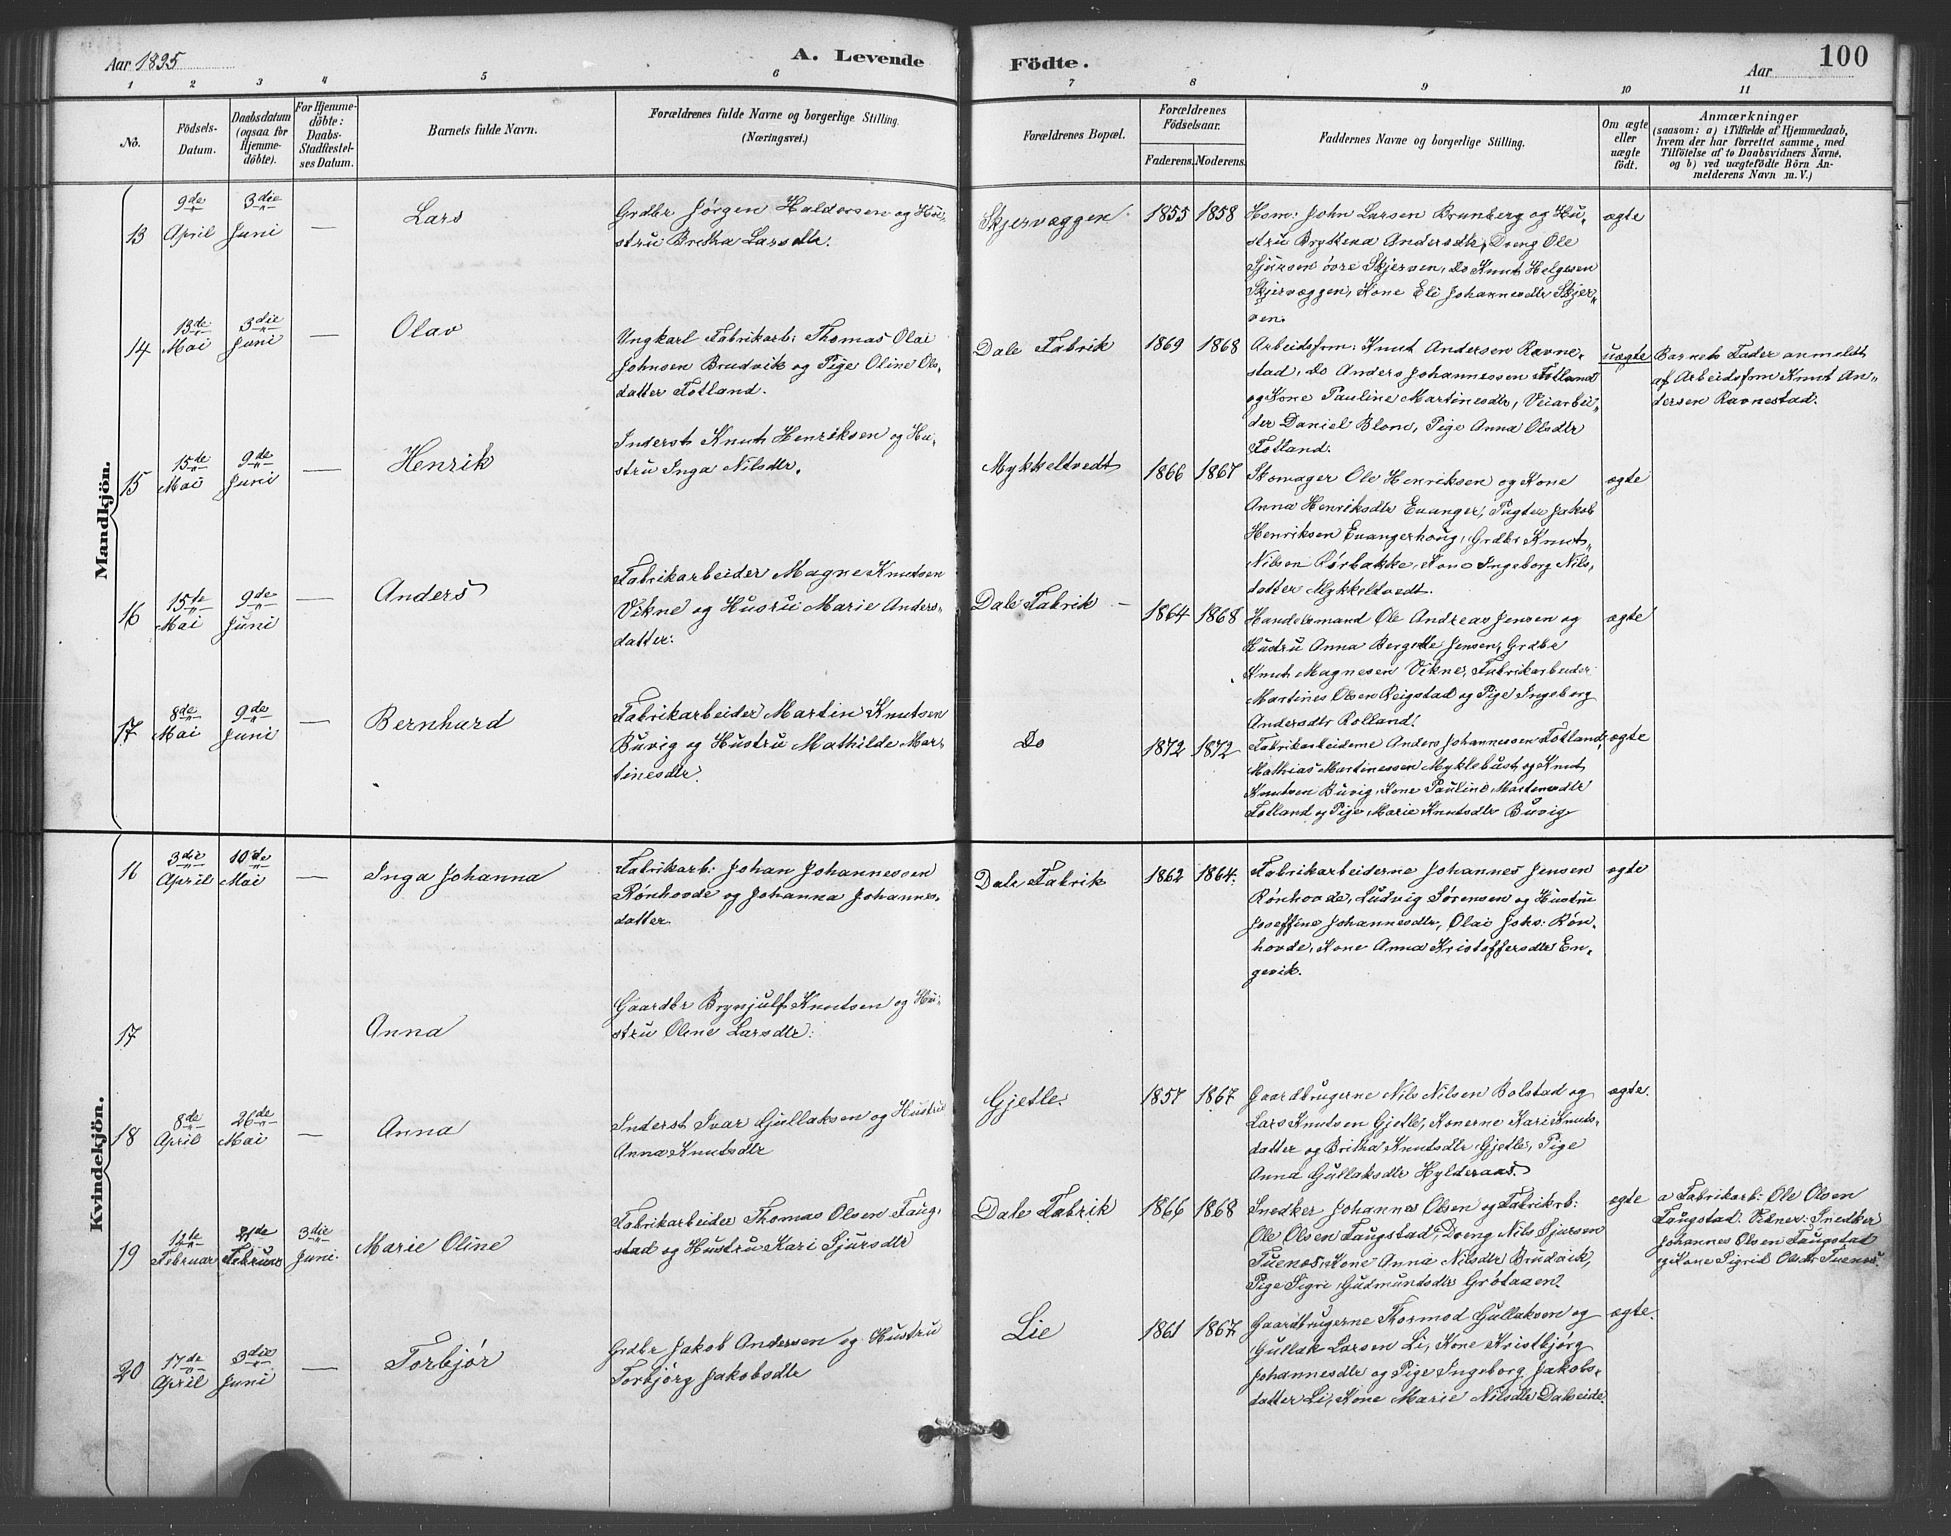 Aar 1895
A. Levende Födte.
Aar
100
1 2 3 4 5 6 7 8 9 10 11
No.
Födsels-Datum.
Daabsdatum (ogsaa for Hjemme-döbte).
For Hjemme-döbte: Daabs-Stadfæstel-ses Datum.
Barnets fulde Navn.
Forældrenes fulde Navne og borgerlige Stilling. (Næringsvei.)
Forældrenes Bopæl.
Forældrenes Födselsaar.
Faderens. Moderens.
Faddernes Navne og borgerlige Stilling.
Om ægte eller uægte födt.
Anmærkninger
(saasom: a) i Tilfælde af Hjemmedaab,
hvem der har forrettet samme, med
Tilföielse af to Daabsvidners Navne,
og b) ved uægtefödte Börn An-
melderens Navn m. V.)
Mandkjön.
13
9de April
3die Juni
—
Lars
Grdbr Jørgen Haldorsen og Hu-
stru Britha Larsdtr.
Skjervæggen
1855 1858
Hsm: John Larsen Brunberg og Hu-
stru Bryttena Andersdtr, Dreng Ole
Sjursen øvre Skjerven, Do Knut Helgesen
Skjervæggen, Kone Eli Johannesdtr Skjer-
ven.
ægte
14
13de Mai
3die Juni
—
Olav
Ungkarl Fabrikarb: Thomas Olai
Johnsen Brudvik og Pige Oline Ols-
datter Fotland.
Dale Fabrik
1869 1868
Arbeidsfrm: Knut Andersen Ravne-
stad, Do Anders Johannessen Fotland
og Kone Pauline Martinesdtr, Veiarbei-
der Daniel Blom, Pige Anna Olsdtr
Fotland.
uægte
Barnets Fader anmeldt
af Arbeidsfrm Knut An-
dersen Ravnestad.
15
15de Mai
9de Juni
—
Henrik
Inderst Knut Henriksen og Hu-
stru Inga Nilsdtr.
Mykkeltvedt
1866 1867
Skomager Ole Henriksen og Kone
Anna Henriksdtr Evanger, Pagter Jakob
Henriksen Evangerhoug, Grdbr Knut
Nilsen Rørbakke, Kone Ingeborg Nils-
datter Mykkeltvedt.
ægte
16
15te Mai
9de Juni
—
Anders
Fabrikarbeider Magne Knutsen
Vikne og Husru Marie Anders-
datter.
Dale Fabrik
1864 1868
Handelsmand Ole Andreas Jensen og
Hustru Anna Bergitte Jensen, Grdbr
Knut Magnesen Vikne, Fabrikarbeider
Martines Olsen Reigstad og Pige Ingeborg
Andersdtr Rolland.
ægte
17
8de Mai
9de Juni
—
Bernhard
Fabrikarbeider Martin Knutsen
Buvig og Hustru Mathilde Mar-
tinesdtr.
Do
1872 1872
Fabrikarbeiderne Anders Johannessen Fotland,
Mathias Martinessen Myklebust og Knut
Knutsen Buvig, Kone Pauline Martensdtr
Fotland og Pige Marie Knutsdtr Buvig
ægte
Kvindekjön.
16
3die April
10de Mai
—
Inga Johanna
Fabrikarb: Johan Johannessen
Rønhovde og Johanna Johannes-
datter.
Dale Fabrik
1862 1864.
Fabrikarbeiderne Johannes Jensen
Rønhovde, Ludvig Sørensen og Hustru
Joseffine Johannesdtr, Olai Johs: Røn-
hovde, Kone Anna Kristoffersdtr En-
gevik.
ægte
17
Anna
Gaardbr Brynjulf Knutsen og Hu-
stru Oline Larsdtr.
Gjetle.
1857 1867
Gaardbrugerne Nils Nilsen Bolstad og
Lars Knutsen Gjetle, Konerne Kari Knuts-
datter og Britha Knutsdtr Gjetle, Pige
Anna Gullaksdtr Hylderaas.
ægte.
18
8de April
26de Mai
—
Anna
Inderst Ivar Gullaksen og Hustru
Anna Knutsdtr
Dale Fabrik
1866 1868
Snedker Johannes Olsen og Fabrikrb:
Ole Olsen Faugstad, Dreng Nils Sjursen
Tuenæs, Kone Anna Nilsdtr Brudvik,
Pige Sigri Gudmundsdtr Grøtaaen.
ægte
a Fabrikarb: Ole Olsen
Faugstad. Vidner: Snedker
Johannes Olsen Faugstad
og Kone Sigrid Olsdtr Tuenæs.
19
Februar
Februar
3die Juni.
Marie Oline
Fabrikarbeider Thomas Olsen Faug-
stad og Hustru Kari Sjursdtr
Lie
1861 1867
Gaardbrugerne Thormod Gullaksen og
Gullak Larsen Li, Kone Kristbjørg
Johannesdtr og Pige Ingeborg Jakobs-
datter Li, Kone Marie Nilsdtr Daleeide.
ægte.
20
17de April
3die Juni
—
Torbjør
Grdbr Jakob Andersen og Hustru
Torbjörg Jakobsdtr